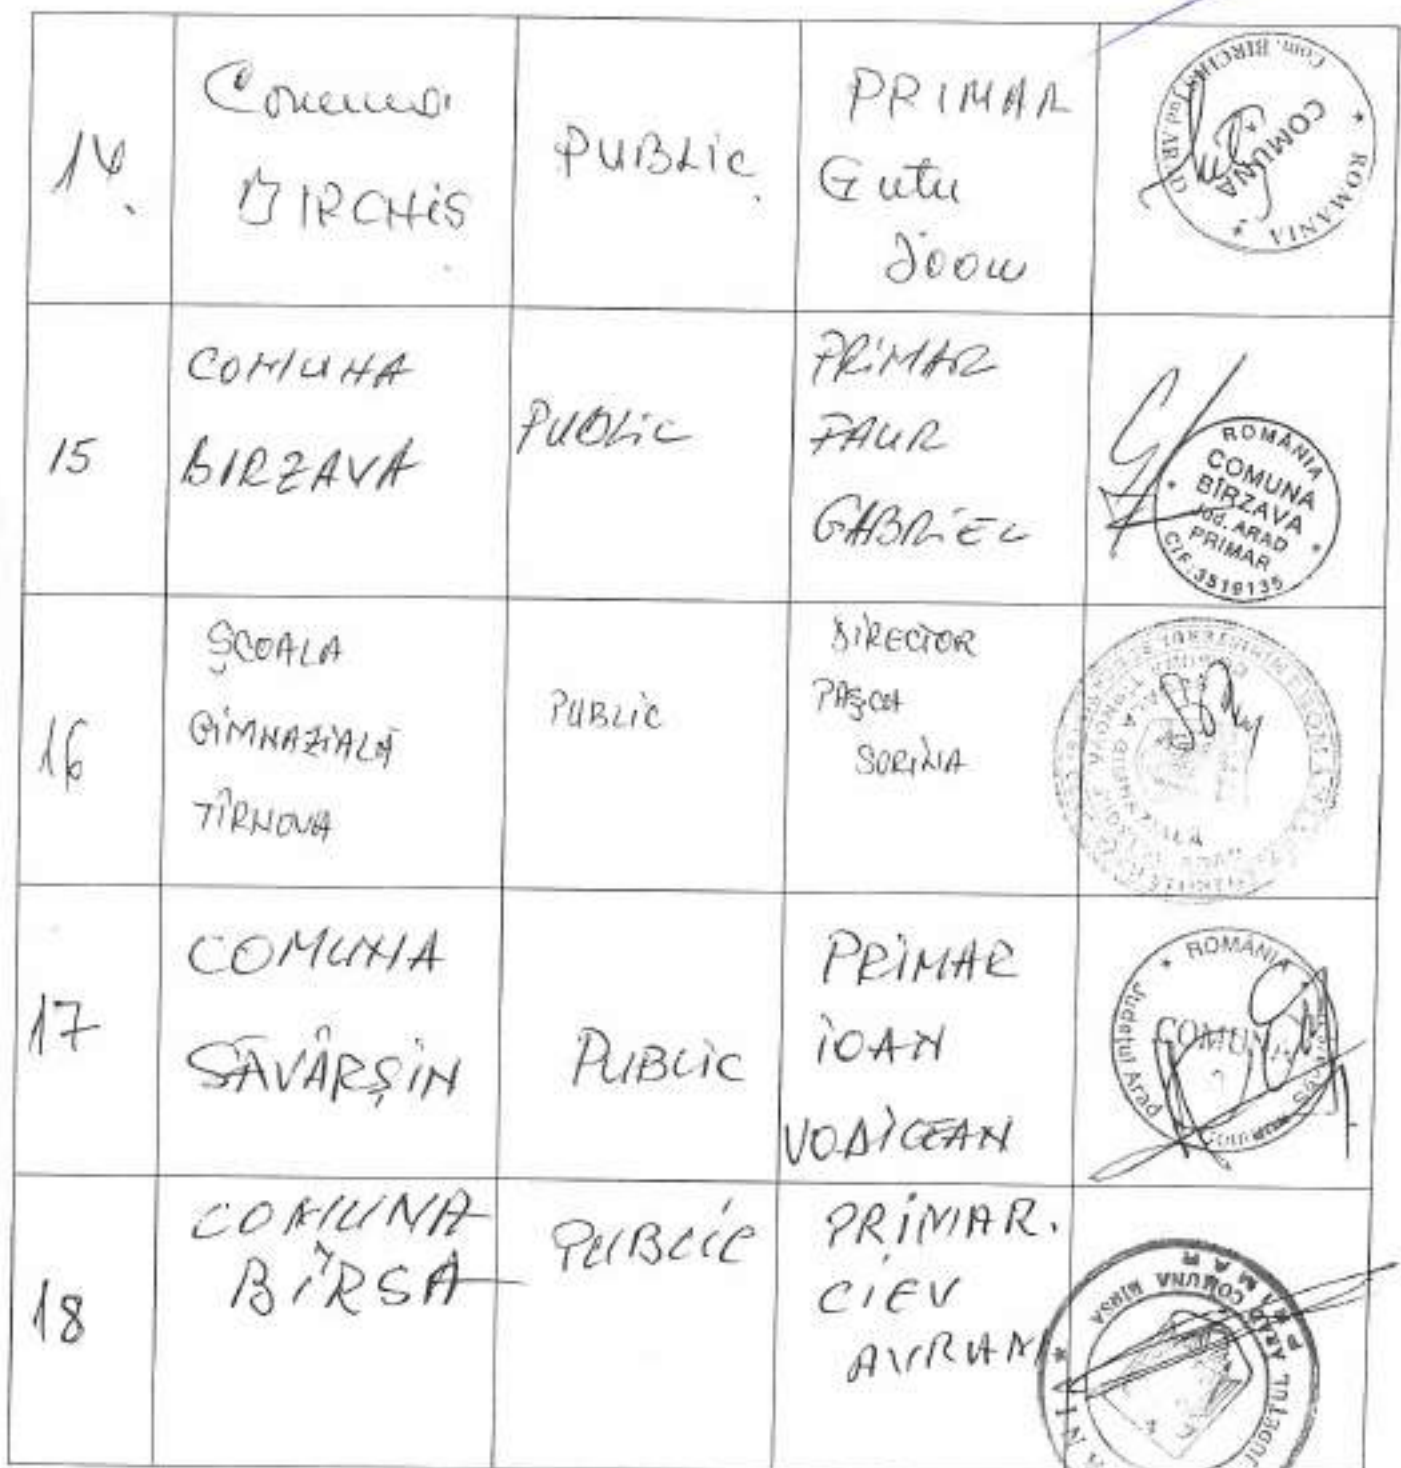 14.
Comuna
BIRCHIS
PUBLIC
PRIMAR
Gutu
Ioan
Com. BIRCHIS Jud. ARAD
COMUNA
* ROMANIA *
15
COMUNA
BIRZAVA
PUBLIC
PRIMAR
FAUR
GABRIEL
ROMÂNIA
COMUNA
BÎRZAVA
Jud. ARAD
PRIMAR
CIF: 3519135
16
ȘCOALA
GIMNAZIALĂ
TÎRNOVA
PUBLIC
DIRECTOR
PAȘCA
SORINA
17
COMUNA
SĂVÂRȘIN
PUBLIC
PRIMAR
IOAN
VODICEAN
* ROMÂNIA *
Județul Arad
COMUNA
18
COMUNA
BÎRSA
PUBLIC
PRIMAR.
CIEV
AVRAM
JUDEȚUL ARAD COMUNA BÎRSA
PRIMAR